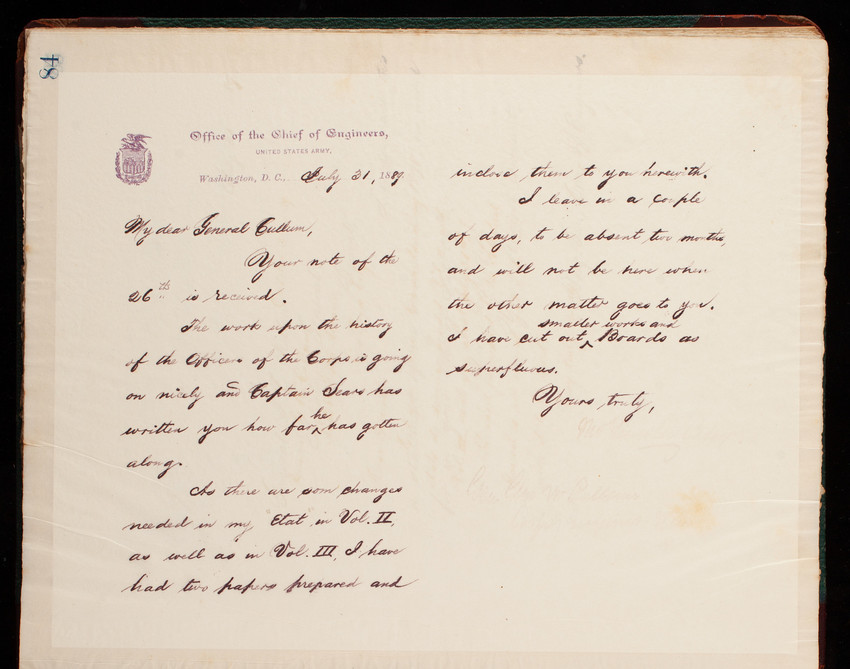 84
Office of the Chief of Engineers,
UNITED STATES ARMY.
Washington, D.C., July 31, 1889
My dear General Cullum,
Your note of the
26th is received.
The work upon the history
of the Officers of the Corps is going
on nicely and Captain Sears has
written you how far he has gotten
along.
As there are som changes
needed in my Etat in Vol. II,
as well as in Vol. III, I have
had two papers prepared and
inclose them to you herewith.
I leave in a couple
of days, to be absent two months,
and will not be here when
the other matter goes to you.
smaller works and
I have cut out Boards as
superfluous.
Yours truly,